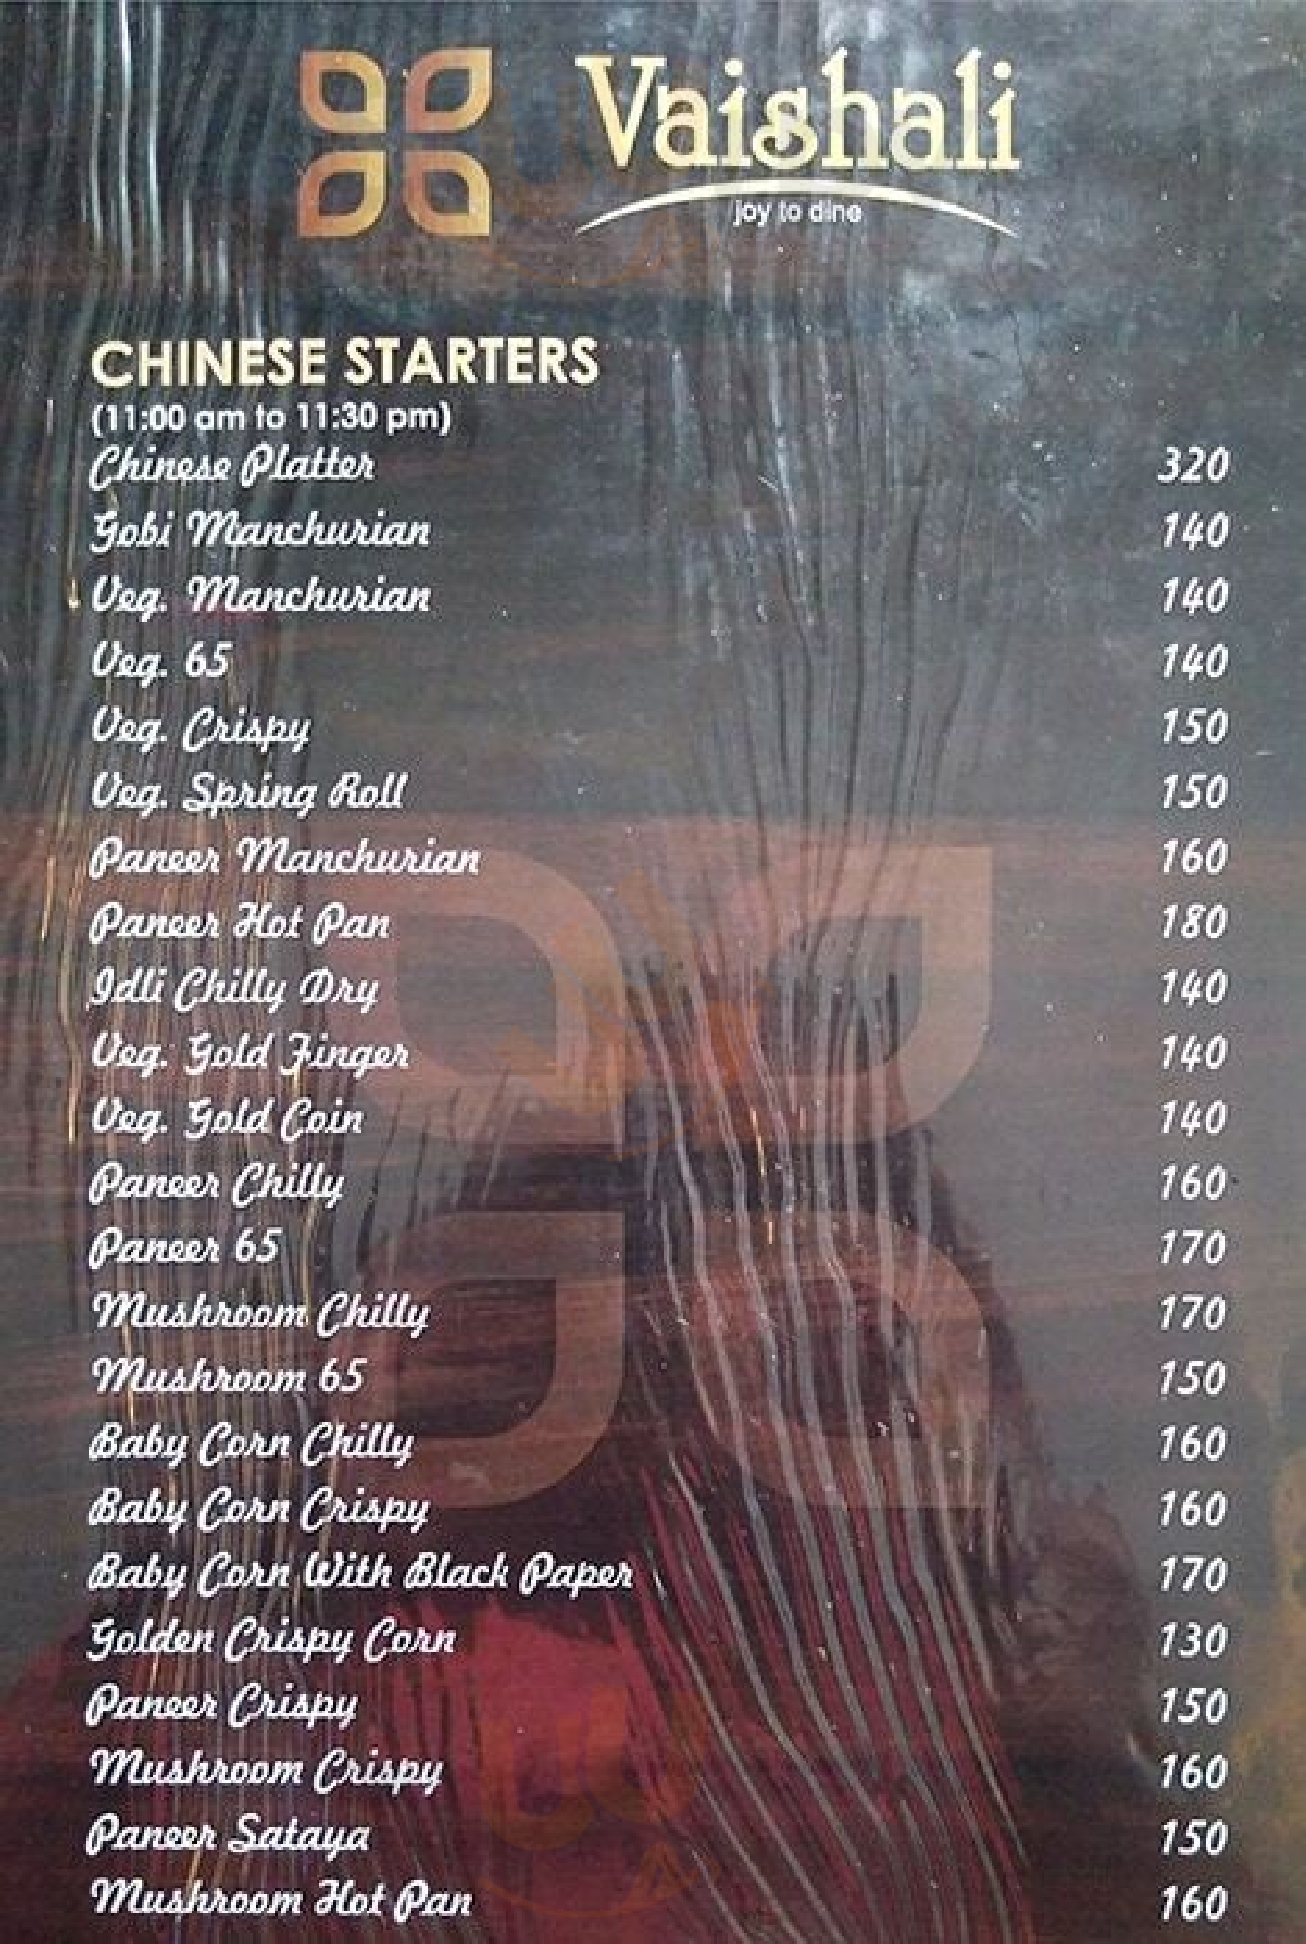 Vaishali
joy to dine
CHINESE STARTERS
(11:00 am to 11:30 pm)
Chinese Platter 320
Gobi Manchurian 140
Veg. Manchurian 140
Veg. 65 140
Veg. Crispy 150
Veg. Spring Roll 150
Paneer Manchurian 160
Paneer Hot Pan 180
Idli Chilly Dry 140
Veg. Gold Finger 140
Veg. Gold Coin 140
Paneer Chilly 160
Paneer 65 170
Mushroom Chilly 170
Mushroom 65 150
Baby Corn Chilly 160
Baby Corn Crispy 160
Baby Corn With Black Paper 170
Golden Crispy Corn 130
Paneer Crispy 150
Mushroom Crispy 160
Paneer Sataya 150
Mushroom Hot Pan 160